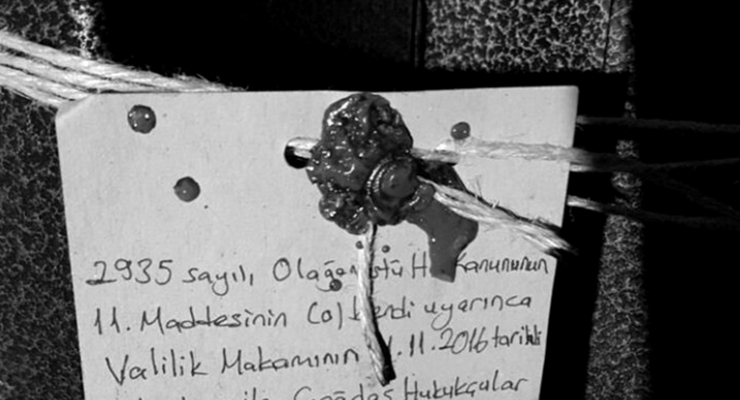 2935 sayılı Olağanüstü H Kanununun
11. Maddesinin (o) bendi uyarınca
Valilik Makamının .11.2016 tarihli
ile Çağdaş Hukukçular